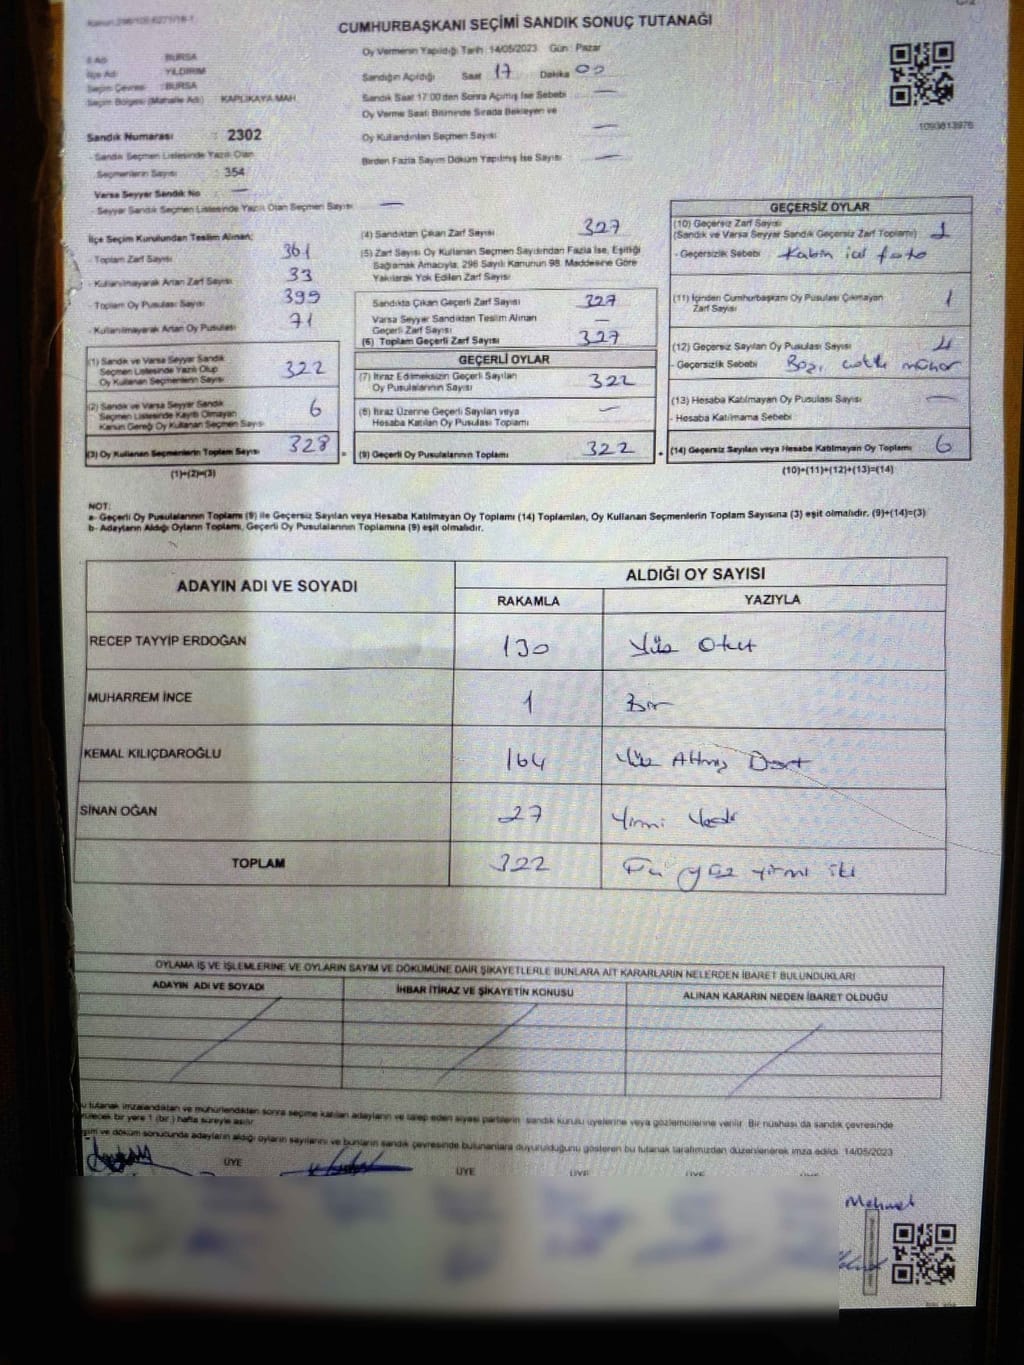 CUMHURBAŞKANI SEÇİMİ SANDIK SONUÇ TUTANAĞI
İl Adı : BURSA
İlçe Adı : YILDIRIM
Seçim Çevresi : BURSA
Seçim Bölgesi (Mahalle Adı) : KAPLIKAYA MAH.
Oy Vermenin Yapıldığı Tarih : 14/05/2023 Gün : Pazar
Sandığın Açıldığı Saat 17 Dakika 00
Sandık Saat 17:00'den Sonra Açılmış İse Sebebi —
Oy Verme Saati Bitiminde Sırada Bekleyen ve
Oy Kullandırılan Seçmen Sayısı —
Birden Fazla Sayım Döküm Yapılmış İse Sayısı —
1093613976
Sandık Numarası : 2302
- Sandık Seçmen Listesinde Yazılı Olan
Seçmenlerin Sayısı : 354
Varsa Seyyar Sandık No —
- Seyyar Sandık Seçmen Listesinde Yazılı Olan Seçmen Sayısı —
İlçe Seçim Kurulundan Teslim Alınan;
- Toplam Zarf Sayısı 361
- Kullanılmayarak Artan Zarf Sayısı 33
- Toplam Oy Pusulası Sayısı 399
- Kullanılmayarak Artan Oy Pusulası 71
(1) Sandık ve Varsa Seyyar Sandık
Seçmen Listesinde Yazılı Olup
Oy Kullanan Seçmenlerin Sayısı 322
(2) Sandık ve Varsa Seyyar Sandık
Seçmen Listesinde Kayıtlı Olmayan
Kanun Gereği Oy Kullanan Seçmen Sayısı 6
(3) Oy Kullanan Seçmenlerin Toplam Sayısı 328
(1)+(2)=(3)
(4) Sandıktan Çıkan Zarf Sayısı 327
(5) Zarf Sayısı Oy Kullanan Seçmen Sayısından Fazla İse, Eşitliği
Sağlamak Amacıyla, 298 Sayılı Kanunun 98. Maddesine Göre
Yakılarak Yok Edilen Zarf Sayısı
Sandıkta Çıkan Geçerli Zarf Sayısı 327
Varsa Seyyar Sandıktan Teslim Alınan
Geçerli Zarf Sayısı —
(6) Toplam Geçerli Zarf Sayısı 327
GEÇERLİ OYLAR
(7) İtiraz Edilmeksizin Geçerli Sayılan
Oy Pusulalarının Sayısı 322
(8) İtiraz Üzerine Geçerli Sayılan veya
Hesaba Katılan Oy Pusulası Toplamı —
(9) Geçerli Oy Pusulalarının Toplamı 322
GEÇERSİZ OYLAR
(10) Geçersiz Zarf Sayısı
(Sandık ve Varsa Seyyar Sandık Geçersiz Zarf Toplamı) 1
- Geçersizlik Sebebi Kabin foto
(11) İçinden Cumhurbaşkanı Oy Pusulası Çıkmayan
Zarf Sayısı 1
(12) Geçersiz Sayılan Oy Pusulası Sayısı 4
- Geçersizlik Sebebi Boş, mühür
(13) Hesaba Katılmayan Oy Pusulası Sayısı —
- Hesaba Katılmama Sebebi
(14) Geçersiz Sayılan veya Hesaba Katılmayan Oy Toplamı 6
(10)+(11)+(12)+(13)=(14)
NOT:
a- Geçerli Oy Pusulalarının Toplamı (9) ile Geçersiz Sayılan veya Hesaba Katılmayan Oy Toplamı (14) Toplamları, Oy Kullanan Seçmenlerin Toplam Sayısına (3) eşit olmalıdır. (9)+(14)=(3)
b- Adayların Aldığı Oyların Toplamı, Geçerli Oy Pusulalarının Toplamına (9) eşit olmalıdır.
ADAYIN ADI VE SOYADI
ALDIĞI OY SAYISI
RAKAMLA YAZIYLA
RECEP TAYYİP ERDOĞAN 130 Yüz Otuz
MUHARREM İNCE 1 Bir
KEMAL KILIÇDAROĞLU 164 Yüz Altmış Dört
SİNAN OĞAN 27 Yirmi Yedi
TOPLAM 322 Üç yüz yirmi iki
OYLAMA İŞ VE İŞLEMLERİNE VE OYLARIN SAYIM VE DÖKÜMÜNE DAİR ŞİKAYETLERLE BUNLARA AİT KARARLARIN NELERDEN İBARET BULUNDUKLARI
ADAYIN ADI VE SOYADI İHBAR İTİRAZ VE ŞİKAYETİN KONUSU ALINAN KARARIN NEDEN İBARET OLDUĞU
u tutanak imzalandıktan ve mühürlendikten sonra seçime katılan adayların ve talep eden siyasi partilerin sandık kurulu üyelerine veya gözlemcilerine verilir. Bir nüshası da sandık çevresinde
bir yere 1 (bir) hafta süreyle asılır.
ve döküm sonucunda adayların aldığı oyların sayılarını ve bunların sandık çevresinde bulunanlara duyurulduğunu gösteren bu tutanak tarafımızdan düzenlenerek imza edildi. 14/05/2023
ÜYE ÜYE ÜYE ÜYE ÜYE
Mehmet